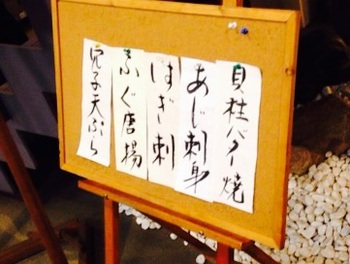 貝柱バター焼
あじ刺身
はぎ刺
ふぐ唐揚
穴子天ぷら